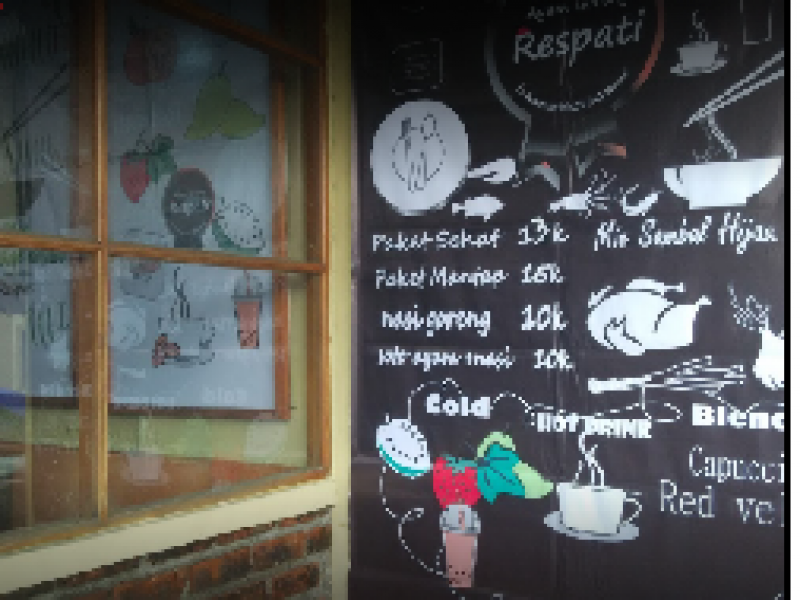 Respati
Paket Sehat 13k
Paket Mantap 15k
nasi goreng 10k
10k
Mie Sambal Hijau
Cold
HOT DRINK
Blend
Capucci
Red vel